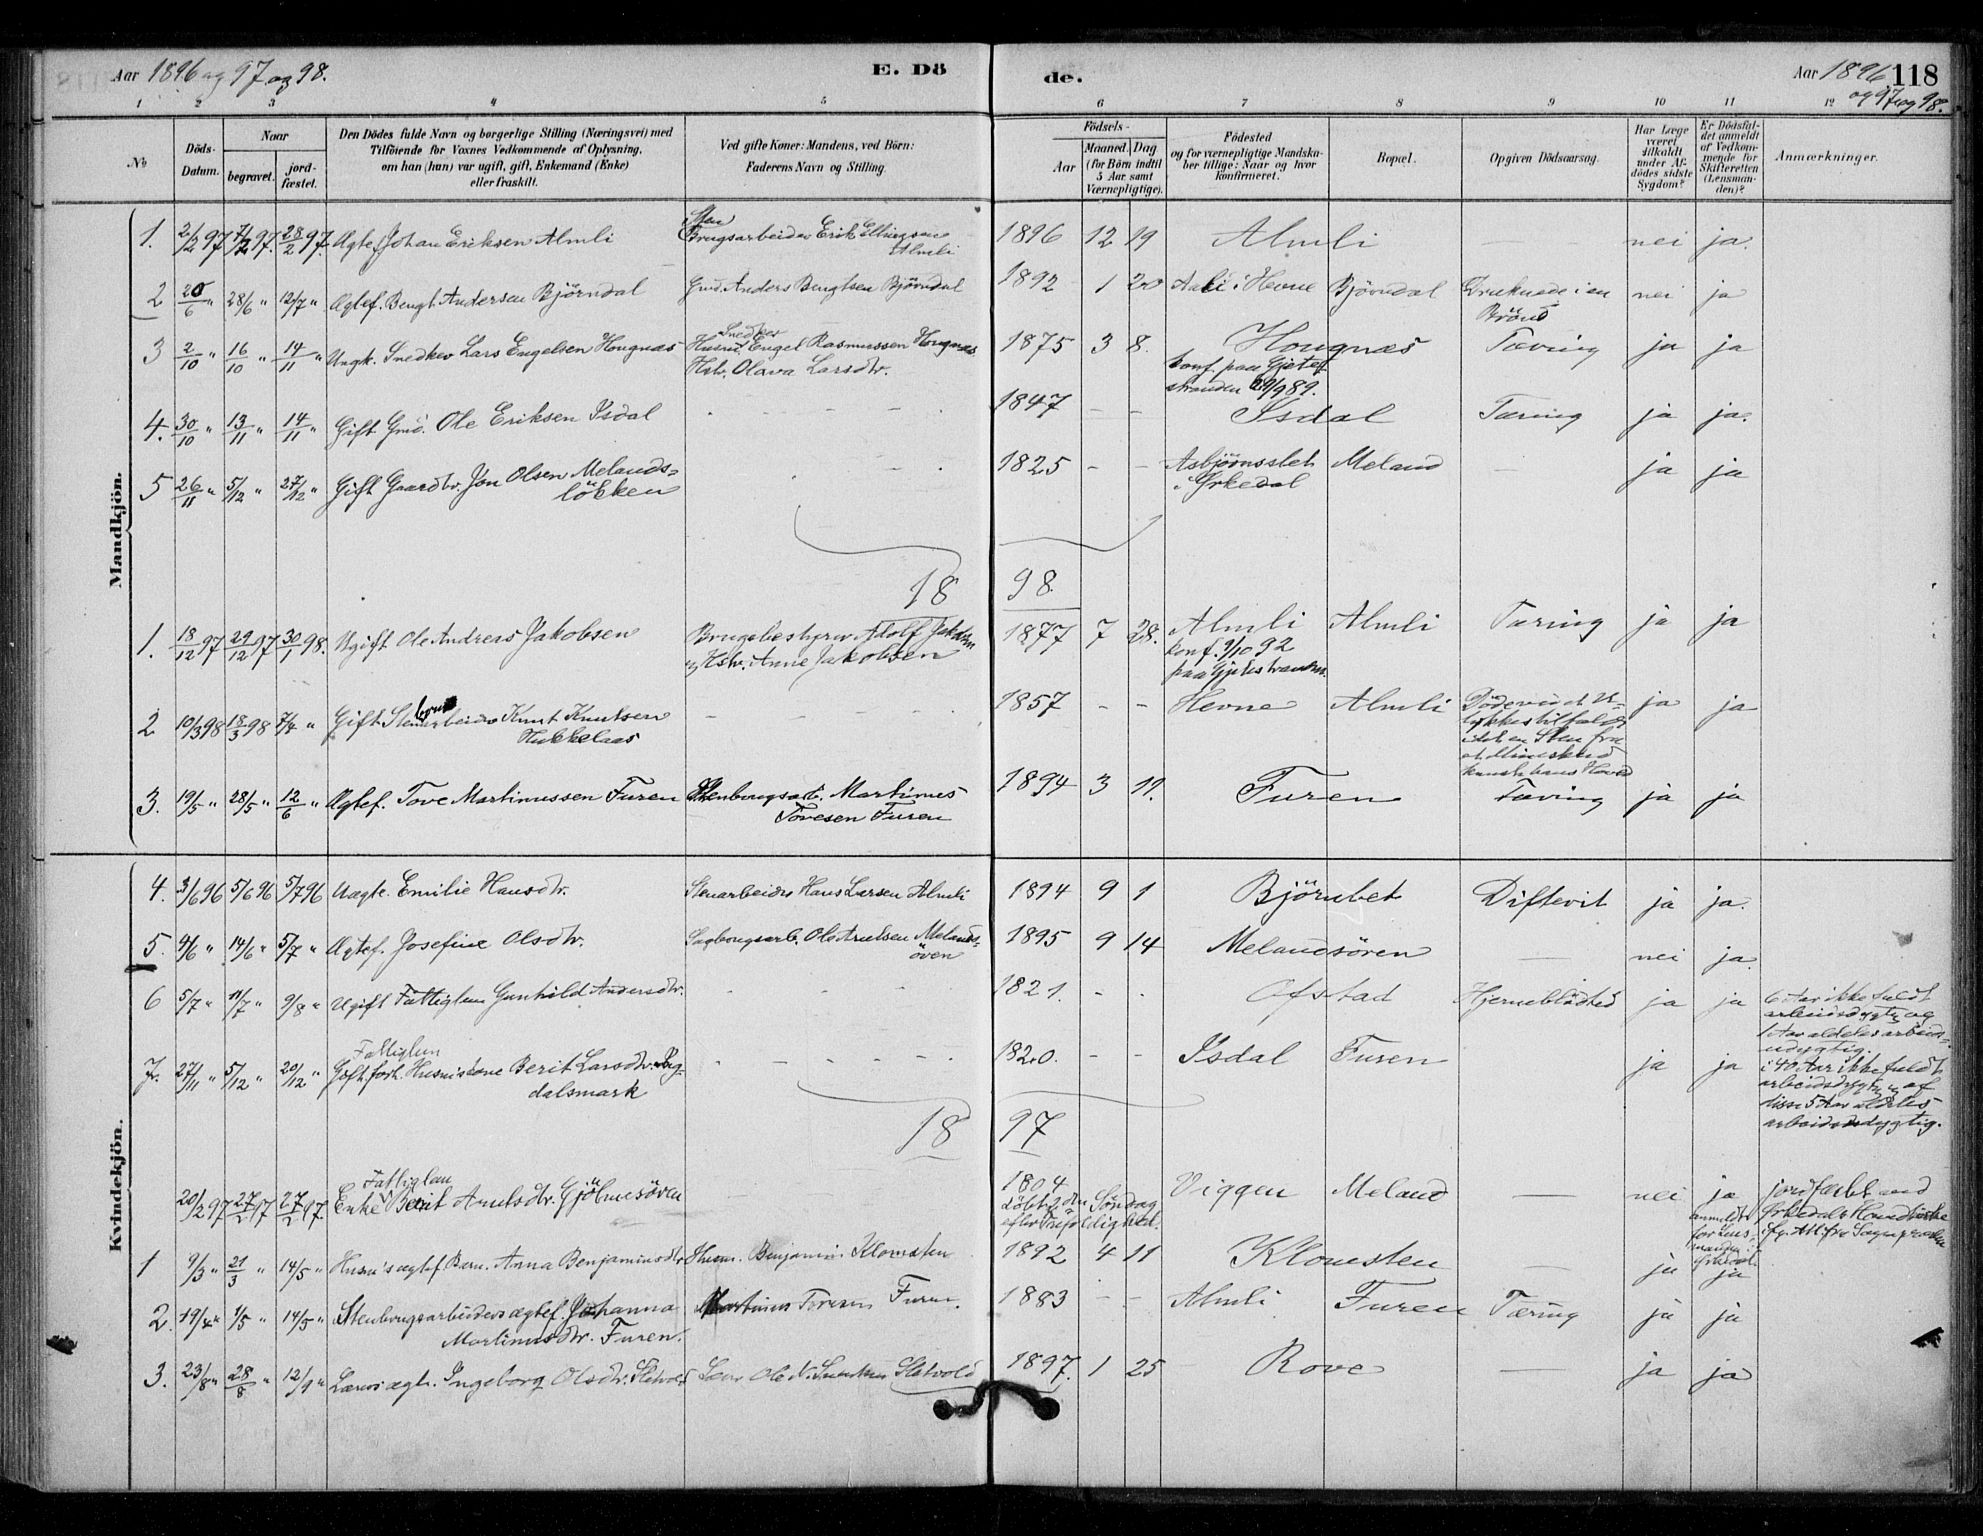 Aar 1896 og 97 og 98.
E. Dö
de.
Aar 1896 118
og 97 og 98.
1 2 3 4 5 6 7 8 9 10 11 12
No
Döds-Datum.
Naar
begravet.
jord-fæstet.
Den Dödes fulde Navn og borgerlige Stilling (Næringsvei) med
Tilföiende for Voxnes Vedkommende af Oplysning,
om han (hun) var ugift, gift, Enkemand (Enke)
eller fraskilt.
Ved gifte Koner: Mandens, ved Börn:
Faderens Navn og Stilling.
Födsels-
Aar
Maaned.
Dag
(for Börn indtil
5 Aar samt
Værnepligtige).
Födested
og for værnepligtige Mandska-
ber tillige: Naar og hvor
konfirmeret.
Bopæl.
Opgiven Dödsaarsag.
Har Læge
været
tilkaldt
under Af-
dödes sidste
Sygdom?
Er Dödsfal-
det anmeldt
af Vedkom-
mende for
Skifteretten
(Lensman-
den)?
Anmærkninger.
Mandkjön.
1. 2/2 97 7/2 97. 28/2 97. Ægtef. Johan Eriksen Almli Brugsarbeider Erik Ellingsen Almli 1896 12 19 Almli — nei ja.
2 20/6 " 28/6 " 12/7 " Ægtef. Bengt Andersen Björndal Gmd. Anders Bengtsen Björndal 1892 1 20 Aali i Hevne Björndal Druknede i en Brönd nei ja
3 2/10 " 16/10 " 14/11 " Ungk. Snedker Lars Engelsen Hongnæs Snedker Husm. Engel Rasmussen Hongnæs
Hstr. Olava Larsdtr. 1875 3 8. Hongnæs Tæring ja ja
konf. paa Gjete-
stranden 29/9 89.
4. 30/10 " 13/11 " 14/11 " Gift Gmd. Ole Eriksen Isdal - - - 1847 - - Isdal Tæring ja ja.
5 26/11 " 5/12 " 27/12 " Gift Gaardbr. Jon Olsen Melands-
lökken 1825 - - Asbjörnsslet Meland — ja ja
i Örkedal
18 98.
1. 18/12 97 29/12 97 30/1 98. Ugift Ole Andreas Jakobsen Brugsbestyrer Adolf Jakobsen
og Hstr. Anne Jakobsen 1877 7 28. Almli Almli Tæring ja ja
konf. 9/10 92
paa Gjetestranden.
2 10/3 98 18/3 98 7/4 " Gift Stenbrudarbeider Knut Knutsen
Stukkelaas - - - 1857 - - Hevne Almli Döde ved et U-
lykkestilfælde
idet en Sten fra
et Mineskud
knuste hans Hoved ja ja
3. 19/5 " 28/5 " 12/6 " Ægtef. Tove Martinussen Furen Stenbrugsarb. Martinus
Tovesen Furen 1894 3 19. Furen Tæring ja ja
Kvindekjön.
4. 3/6 96 5/6 96 5/7 96 Uægte. Emilie Hansdtr. Stenarbeider Hans Larsen Almli 1894 9 1 Björnbet Difterit ja ja.
5. 9/6 " 14/6 " 5/7 " Ægtef. Josefine Olsdtr. Sagbrugsarb. Ole Arntsen Melands-
ören 1895 9 14 Melandsören — nei ja.
6 5/7 " 11/7 " 9/8 " Ugift Fattiglem Gunhild Andersdtr. - - - 1821. - - Ofstad Hjerneblödhed ja ja 6 Aar ikke fuldt
arbeidsdygtig og
1 Aar aldeles arbeids-
udygtig.
7. 27/11 " 5/12 " 20/12 " Fattiglem
Gift forh. Husmskone Berit Larsdtr. Rog-
dalsmark - - - 1820. - - Isdal Furen ja ja i 40 Aar ikke fuldt
arbeidsdygtig og af
disse 5 Aar aldeles
arbeidsudygtig.
18 97
20/2 97 27/2 97 27/2 97. Fattiglem
Enke Berit Arntsdtr. Gjölmesören — 1804
döbt 2den Söndag
efter Trefoldighed. Viggen Meland — nei ja
anmeldt
for Lens-
manden i
Örkedal. jordfæstet ved
Örkedals Hovedkirke
ifg. Att. fra Sognepræsten
1 9/3 " 21/3 " 14/5 " Husm's ægtef. Barn. Anna Benjaminsdtr. Husm. Benjamin Klomsten 1892 4 11 Klomsten — ja ja
2. 19/4 " 1/5 " 14/5 " Stenbrugsarbeiders ægtef. Johanna
Martinusdtr. Furen. Martinus Toresen Furen. 1883 - - Almli Furen Tæring ja ja
3. 23/8 " 28/8 " 12/9 " Lærers ægt. Ingeborg Olsdtr. Sletvold Lærer Ole N. Sletvold 1897. 1 25 Rove — ja ja